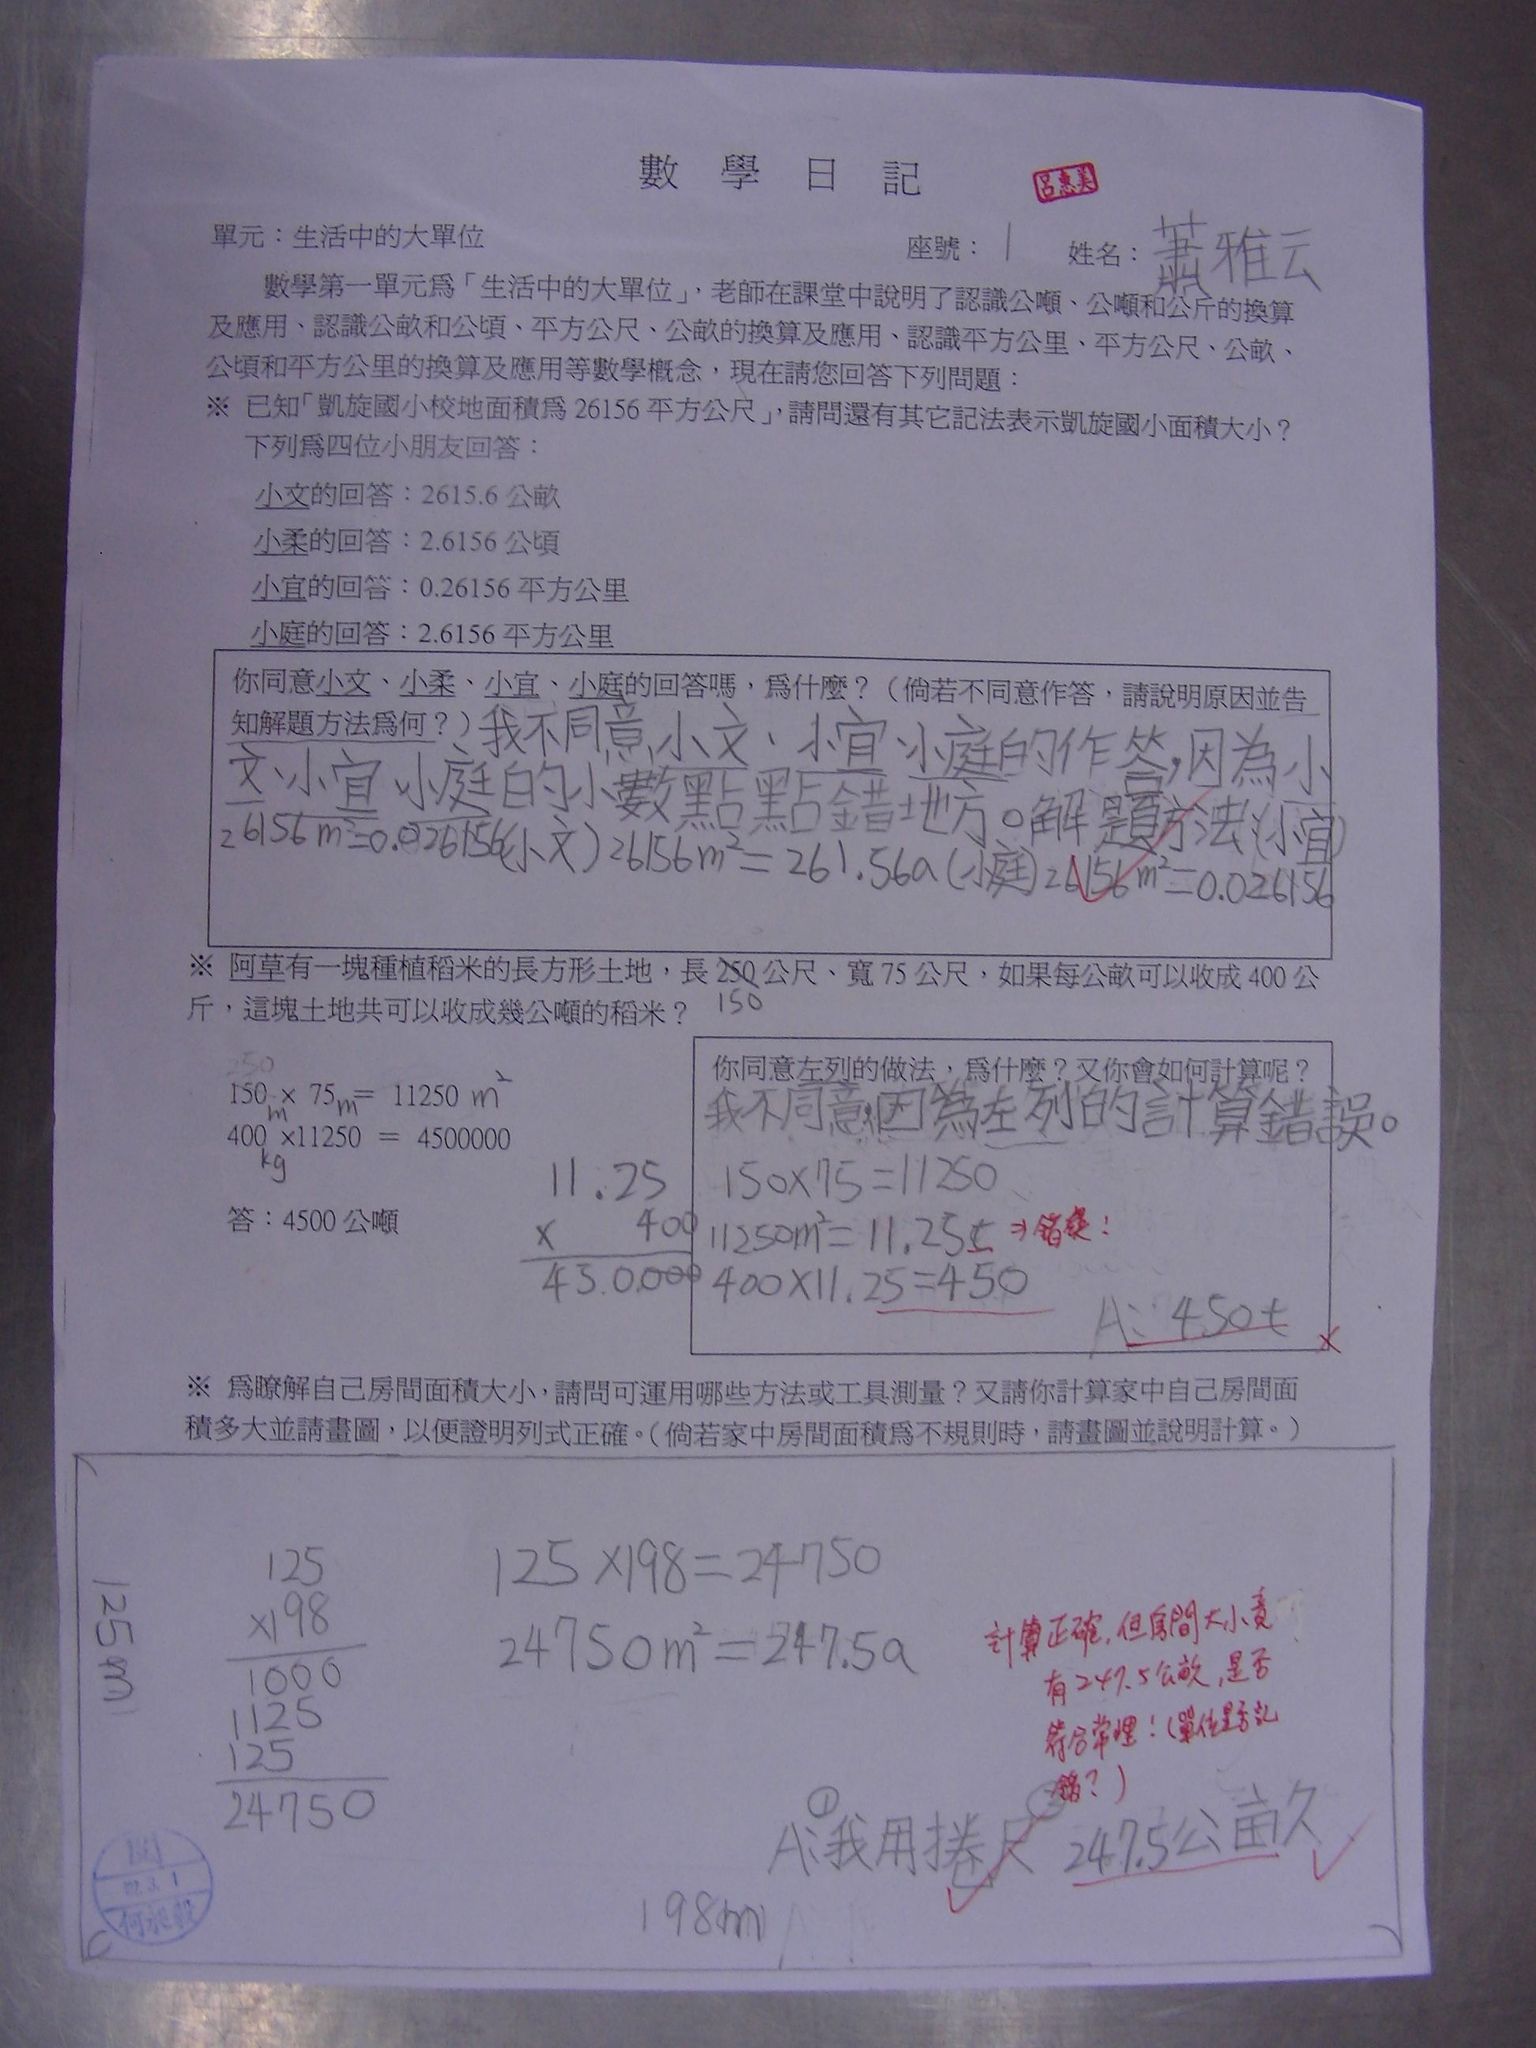 數學日記
呂惠美
單元：生活中的大單位
座號：1 姓名：蕭雅云
數學第一單元為「生活中的大單位」，老師在課堂中說明了認識公噸、公噸和公斤的換算
及應用、認識公畝和公頃、平方公尺、公畝的換算及應用、認識平方公里、平方公尺、公畝、
公頃和平方公里的換算及應用等數學概念，現在請您回答下列問題：
※ 已知「凱旋國小校地面積為 26156 平方公尺」，請問還有其它記法表示凱旋國小面積大小？
下列為四位小朋友回答：
小文的回答：2615.6 公畝
小柔的回答：2.6156 公頃
小宜的回答：0.26156 平方公里
小庭的回答：2.6156 平方公里
你同意小文、小柔、小宜、小庭的回答嗎，為什麼？（倘若不同意作答，請說明原因並告
知解題方法為何？）我不同意小文、小宜、小庭的作答，因為小
文、小宜、小庭的小數點點錯地方。解題方法：(小宜)
26156m²=0.026156(小文)26156m²=261.56a(小庭)26156m²=0.026156
※ 阿草有一塊種植稻米的長方形土地，長 250 公尺、寬 75 公尺，如果每公畝可以收成 400 公
150
斤，這塊土地共可以收成幾公噸的稻米？
250
150 m × 75 m = 11250 m²
400 kg ×11250 = 4500000
答：4500 公噸
11.25
× 400
450.000
你同意左列的做法，為什麼？又你會如何計算呢？
我不同意，因為左列的計算錯誤。
150×75=11250
11250m²=11.25t ⇒錯誤！
400×11.25=450
A：450t
※ 為瞭解自己房間面積大小，請問可運用哪些方法或工具測量？又請你計算家中自己房間面
積多大並請畫圖，以便證明列式正確。（倘若家中房間面積為不規則時，請畫圖並說明計算。）
125m
125
×198
1000
1125
125
24750
125×198=24750
24750m²=247.5a
計算正確，但房間大小竟
有247.5公畝，是否
符合常理！（單位是否記
錯？）
A：①我用捲尺 ②247.5公畝
198m